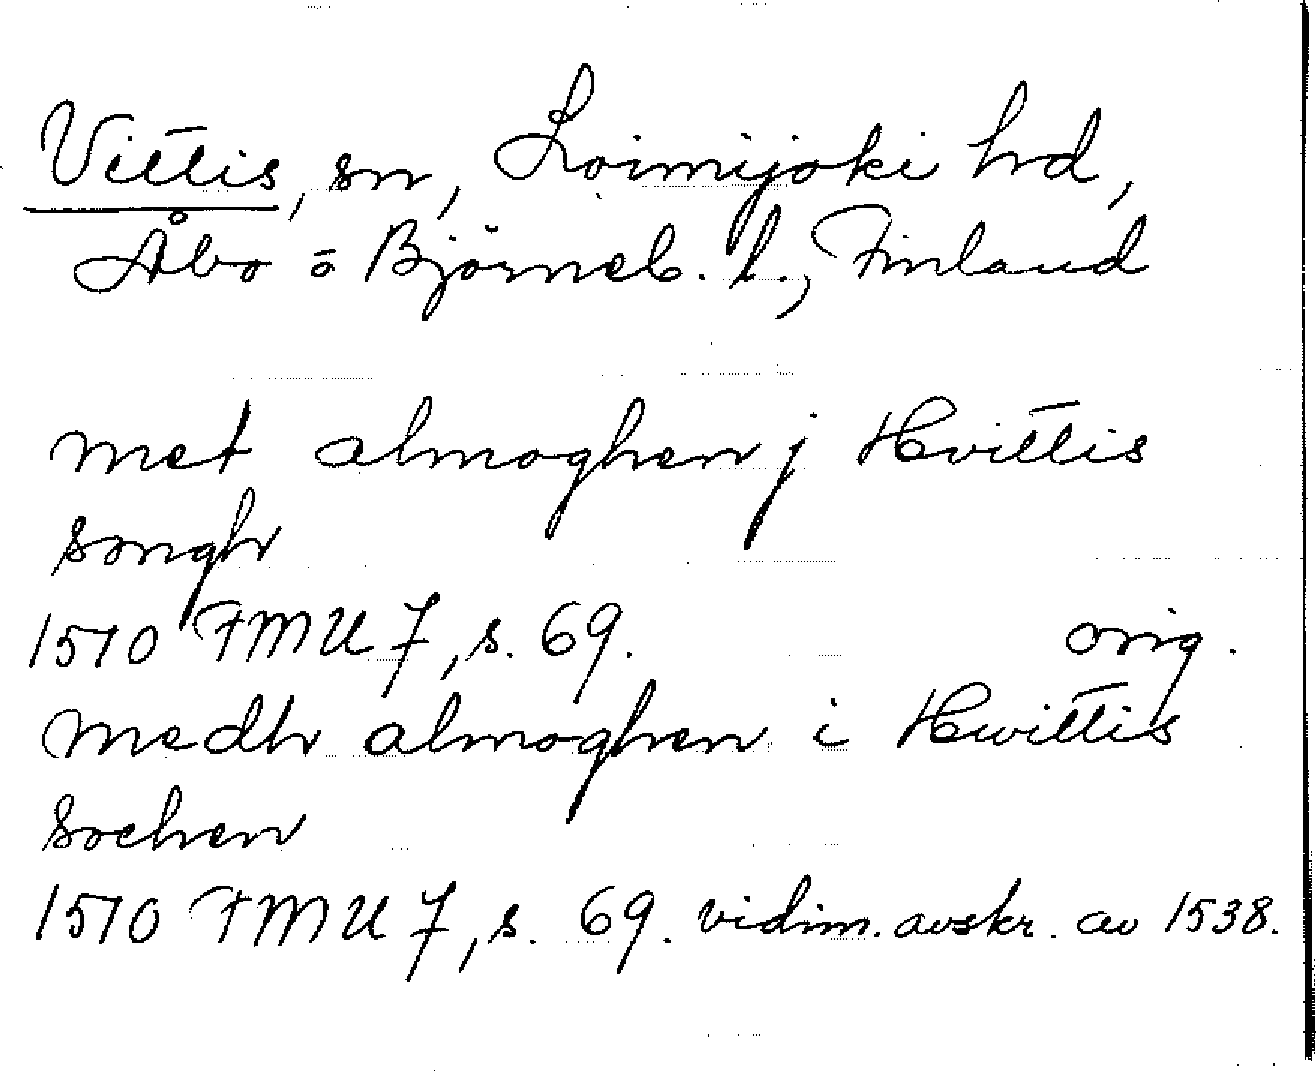 Vittis, sn, Loimijoki hd,
Åbo o Björneb. l., Finland
met almoghen j Hvittis
songh
1510 FMU 7, s. 69. orig.
medh almoghen i Hwittis
sochen
1510 FMU 7, s. 69. vidim. avskr. av 1538.